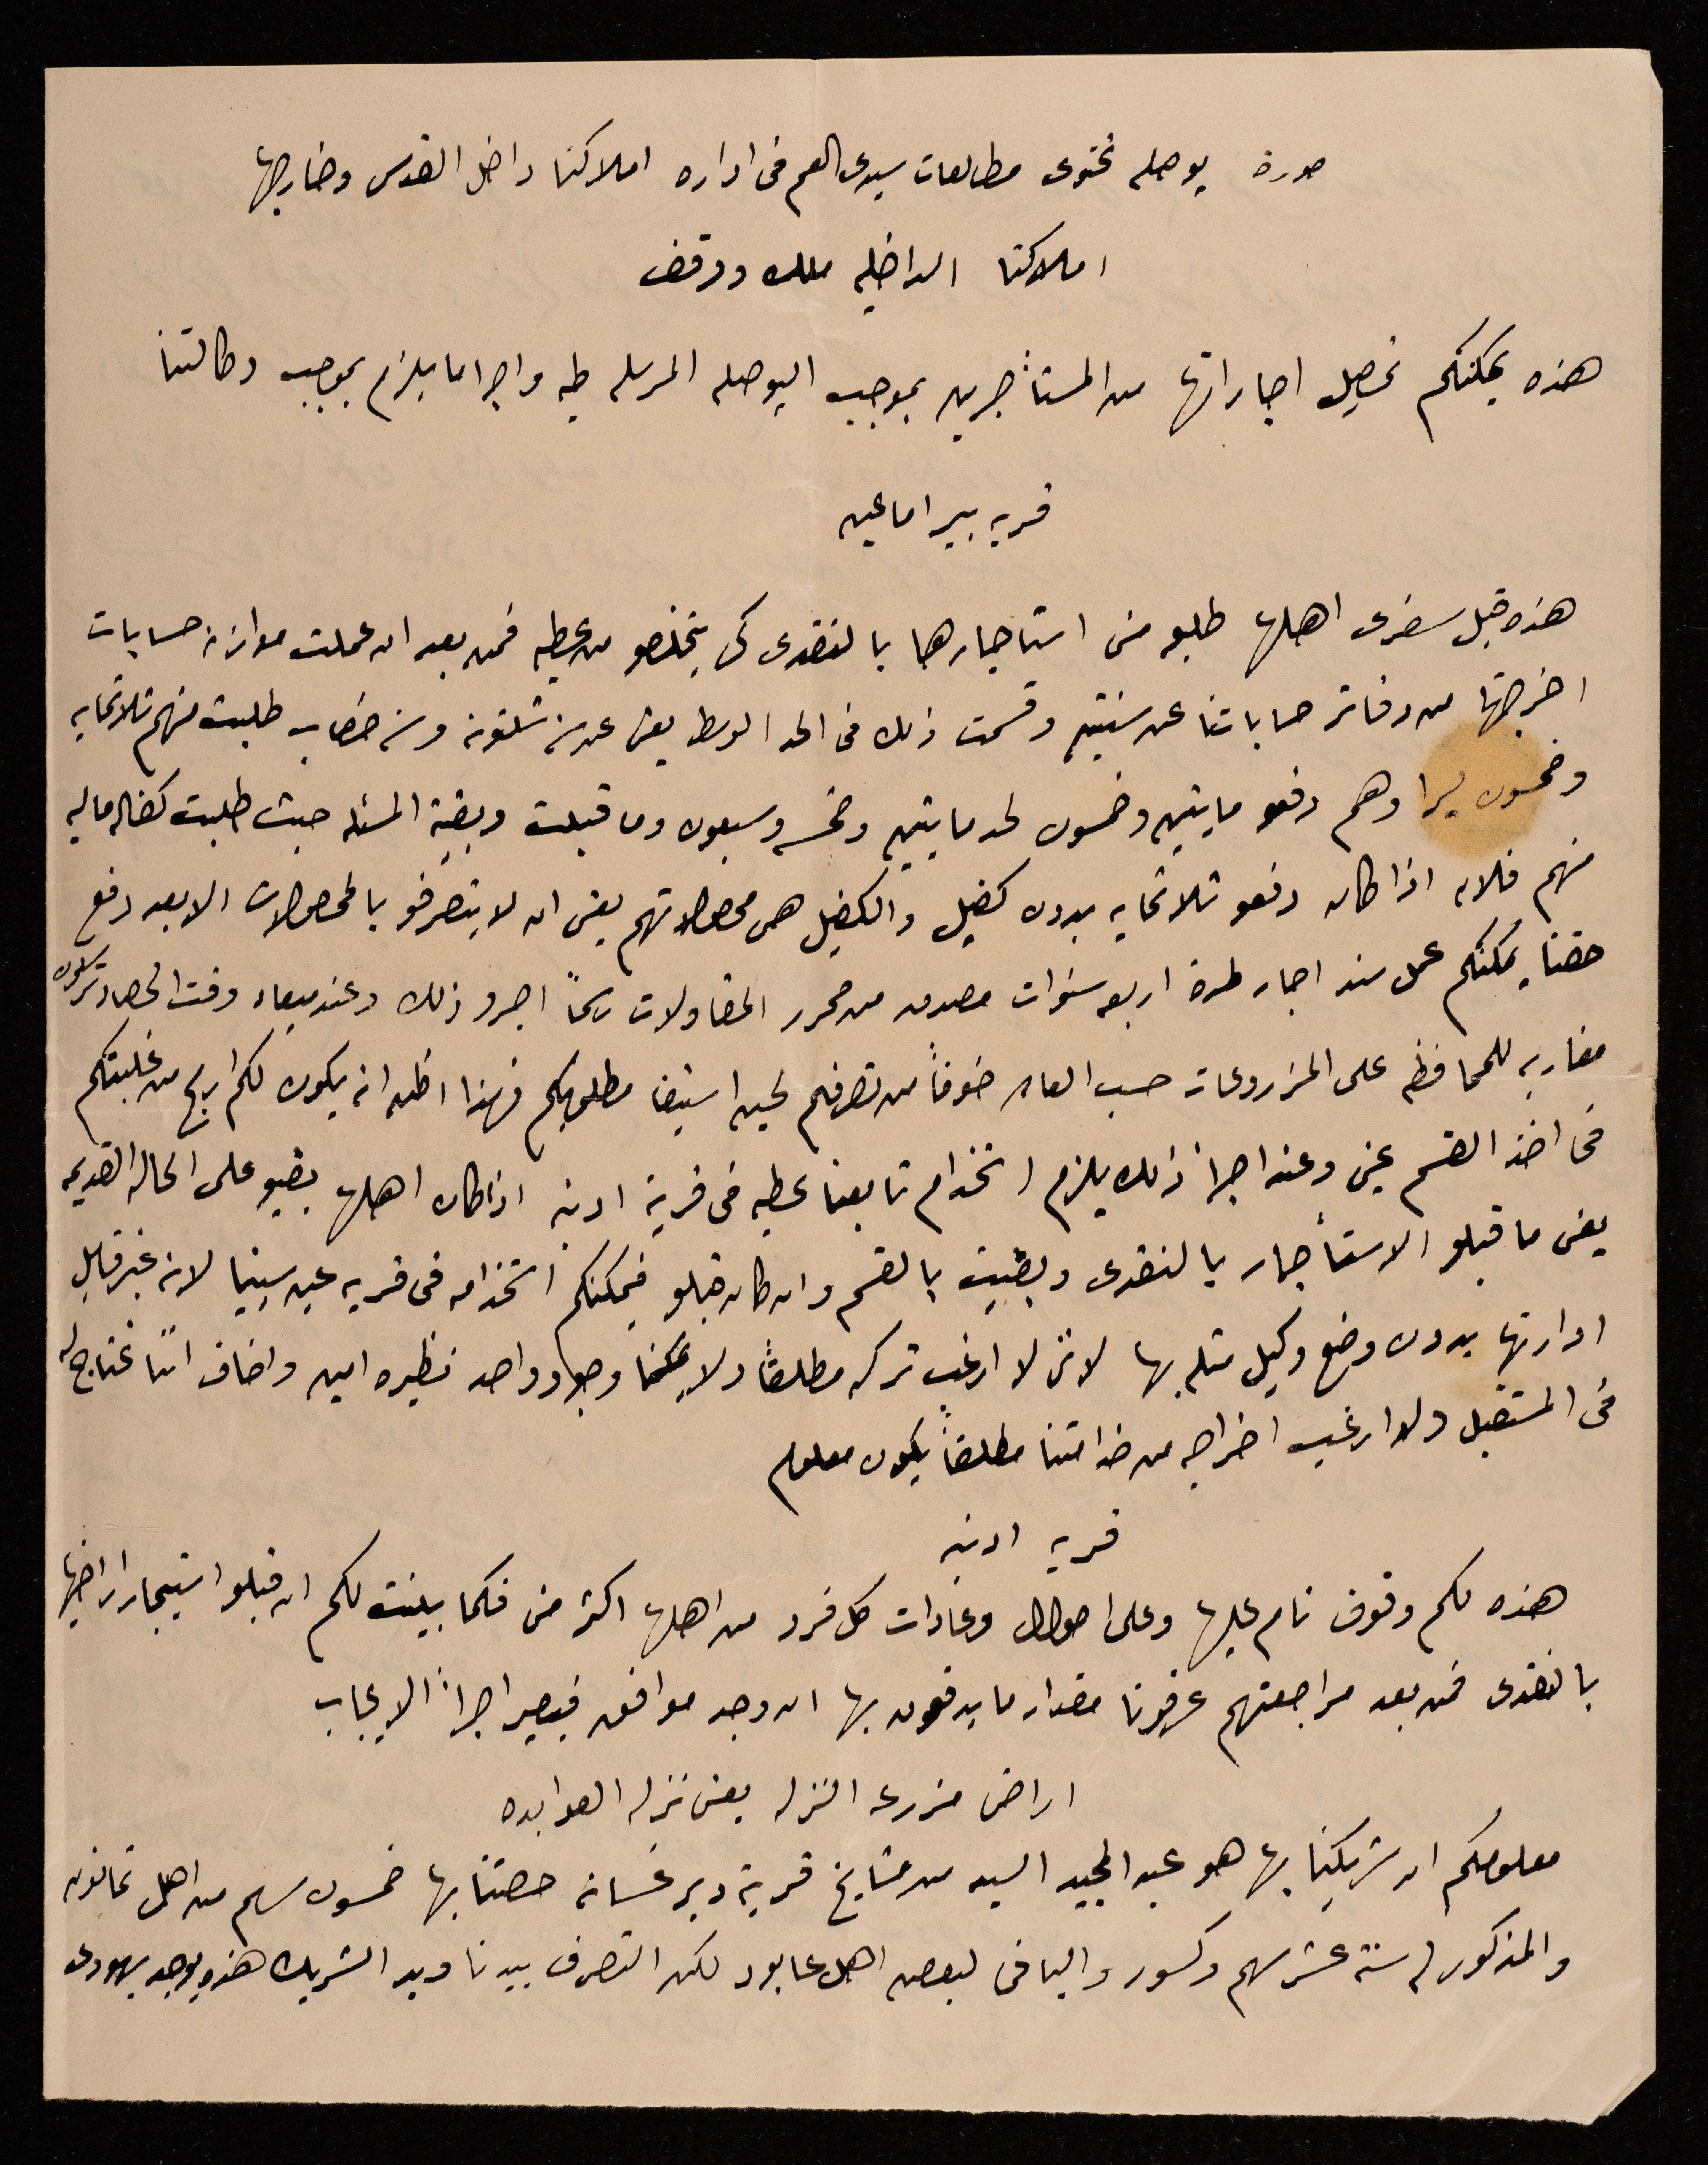 صورة يوصله تحتوى مطالعات سيدى العم فى اداره املاكنا داخل القدس وخارجها
املاكنا الداخليه ملك ووقف
هذه يمكنكم تحصيل اجاراتها من المستأجرين بموجب اليوصله المرسله طيه واجرا ما يلزم بموجب وكالتنا
قريه بير اماعين
هذه قبل سفرى اهلها طلبو منى استاجارها بالنقدى كى يتخلصو من عطيه فمن بعد ان عملت موازنة حسابات
اخرجتها من دفاتر حساباتنا عن سنتين وقسمت ذلك فى الحد الوسط يعنى عن سنة شلتونة وسنة خصاب طلبت منهم ثلاثمايه
وخمسون ليرا وهم دفعو مايتين وخمسون لحد مايتين وخمسه وسبعون وما قبلت وبقية المسئله حيث طلبت كفاله ماليه
منهم فلان اذا كان دفعو ثلاثمايه بدون كفيل والكفيل هى محصولاتهم يعنى ان لا يتصرفو بالمحصولات الا بعد دفع
حقنا يمكنكم عمل سند اجار لمدة اربعه سنوات مصدق من محرر المقاولات رسماً اجرو ذلك وعند ميعاد وقت الحصاد ترسلون
مغاربه للمحافظه على المزروعات حسب العاده خوفاً من تصرفهم لحين استيفا مطلوبكم فهذا اظن انه يكون لكم اربح من غلبتكم
فى اخذ القسم عينى وعند اجراء ذلك يلزم استخدام تابعنا عطيه فى قرية ادنه اذا كان اهلها بقيو على الحاله القديمه
يعنى ما قبلو الاستأجار بالنقدى وبقيت بالقسم وان كان قبلو فيمكنكم استخدامه فى قريه عين سينيا لانه غير قابل
ادارتها بدون وضع وكيل مثله بها لانى لا ارغب تركه مطلقاً ولا يمكننا وجود واحد نظيره امين واخاف اننا نحتاج له
فى المستقبل ولا ارغب اخراجه من خدامتنا مطلقاً يكون معلوم
قريه ادنه
هذه لكم وقوف تام عليها وعلى احوال وعادات كل فرد من اهلها اكثر منى فكما بينت لكم ان قبلو استيجار اراضيها
بالنقدى فمن بعد مراجعتهم عرفونا مقدار ما يدفعون بها ان وجد موافق فيصير اجراء الايجاب
اراضى مزرعه النزله يعنى نزله العوابده
معلومكم ان شريكنا بها هو عبد المجيد السيد من مشايخ قرية دير غسانه حصتنا بها خمسون سهم من اهل ثمانون
والمذكور له ستة عشر سهم وكسور والباقى لبعض اهل عابود لكن التصرف بيدنا ويد الشريك هذه يوجد يهودى